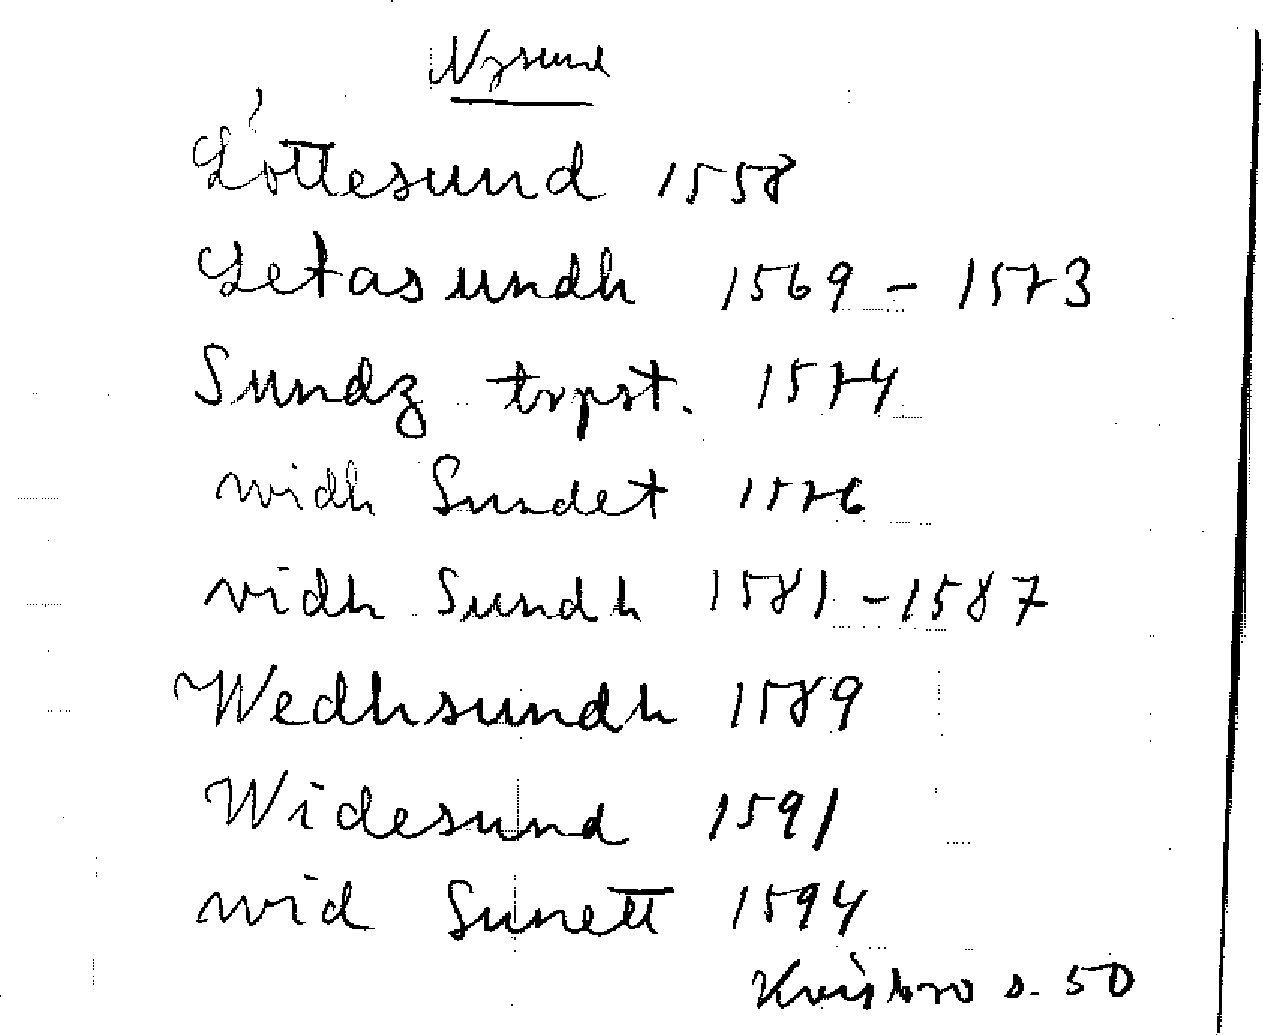 Nysund
Lottesund 1558
Letasundh 1569 - 1573
Sundz torpst. 1574
widh Sundet 1576
vidh Sundh 1581 - 1587
Wedhsundh 1589
Widesund 1591
wid Sunett 1594
Kvisbro s. 50